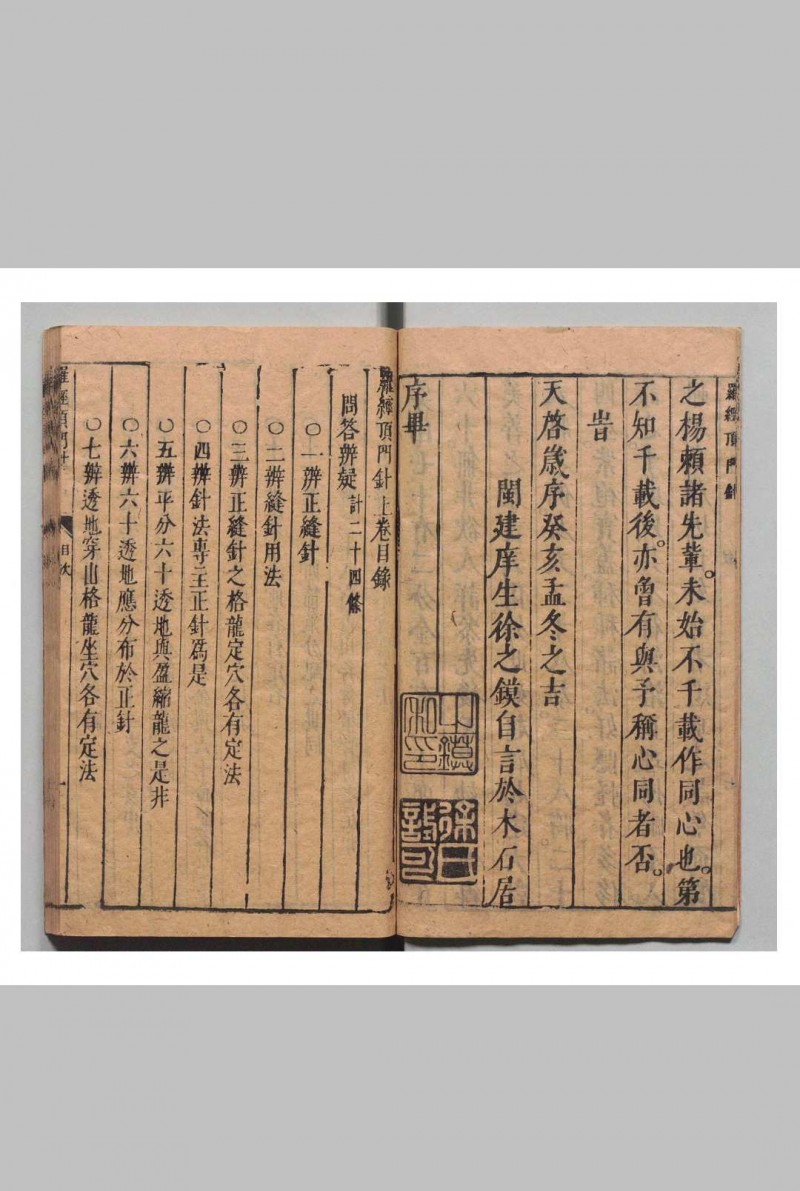 羅經頂門針
之楊賴諸先輩。未始不千載作同心也。第
不知千載後。亦曾有與予稱心同者否。
旹
天啓歲序癸亥孟冬之吉
閩建庠生徐之鏌自言於木石居
序畢
羅經頂門針上卷目錄
問答辯疑計二十四條
○一辯正縫針
○二辯縫針用法
○三辯正縫針之格龍定穴各有定法
○四辯針法專主正針爲是
○五辯平分六十透地與盈縮龍之是非
○六辯六十透地應分布於正針
○七辯透地穿山格龍坐穴各有定法
羅經頂門針 目次 一